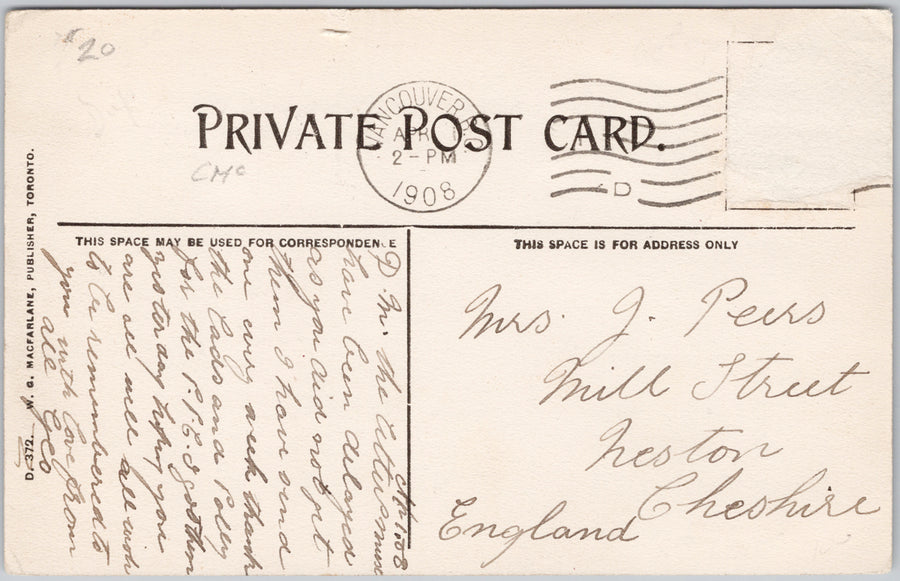 20
PRIVATE POST CARD.
VANCOUVER, B.C.
APR 1
2-PM
1908
D
CMC
THIS SPACE MAY BE USED FOR CORRESPONDENCE
THIS SPACE IS FOR ADDRESS ONLY
W. G. MACFARLANE, PUBLISHER, TORONTO.
D. 372.
Ap 1 08
D. M. the letters must
have been delayed
as you did not get
them I have send
one every week thank
the lads and Polly
for the P.P.C. I got them
yesterday hoping you
are all well all wish
to be remembered to
you with love from
all Geo
Mrs. J. Peers
Mill Street
Neston
Cheshire
England